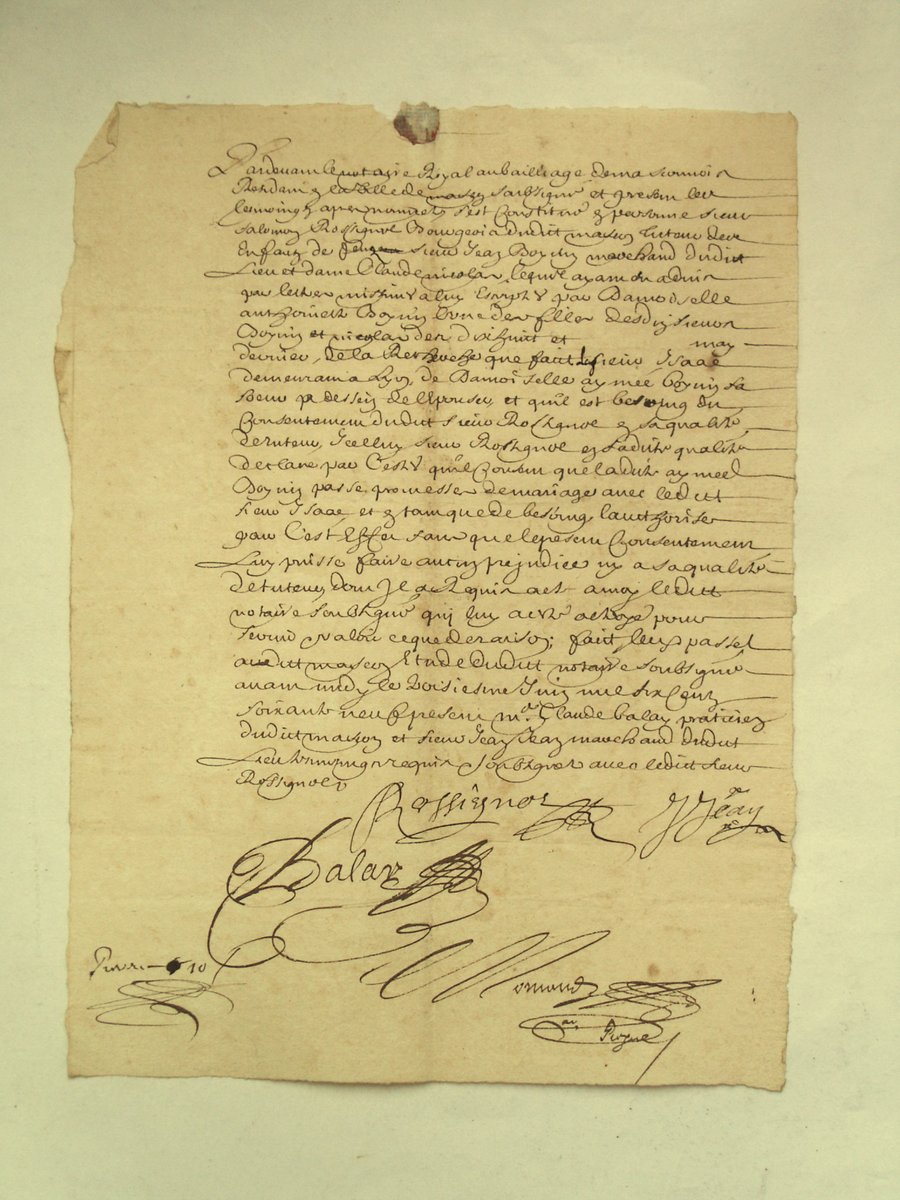 Pardevant le notaire Royal au bailliage de masconnois
Residant en la ville de mascon soubsigné et presens les
tesmoings apres nommés s'est Constitué en personne sieur
salomon Rossignol Bourgeois dudict mascon tuteur des
Enfans de sieur Jean Boyin marchand dudict
Lieu et dame Claude nicolas, lequel ayant adins
par lettre missive a luy Escripte par Damoiselle
Boyin l'une des filles desdictz sieurs
Boyin et nicolas des dixhuict et may
dernier, de la Recherche que faict le sieur Isaac
demeurant a Lyon de Damoiselle aymée boyin sa
soeur a dessein de l'Epouser, et qu'il est besoing du
Consentement dudict sieur Rossignol en sa qualité
de tuteur, Icelluy sieur Rossignol en sadicte qualité
declare par C'est qu'il Consent que ladicte aymee
Boyin passe promesses de mariage avec ledict
sieur Isaac et en tant que de besoing l'aucthorise
par C'est Effet sans que le present Consentement
Luy puisse faire aucun prejudice ny a sa qualité
de tuteur dont Il a Requis acte a moy ledict
notaire soubsigné qui luy ay octroyé pour
servir et valoir ce que de raison; faict leu et passé
audict mascon Etude dudict notaire soubsigné
avant midy le troisiesme Juin mil six Cent
soixante neuf present me Claude balay praticien
dudict mascon et sieur Jean Jean marchand dudict
Lieu tesmoings requis soubsignes avec ledict sieur
Rossignol
Rossignol
J Jean
Balay